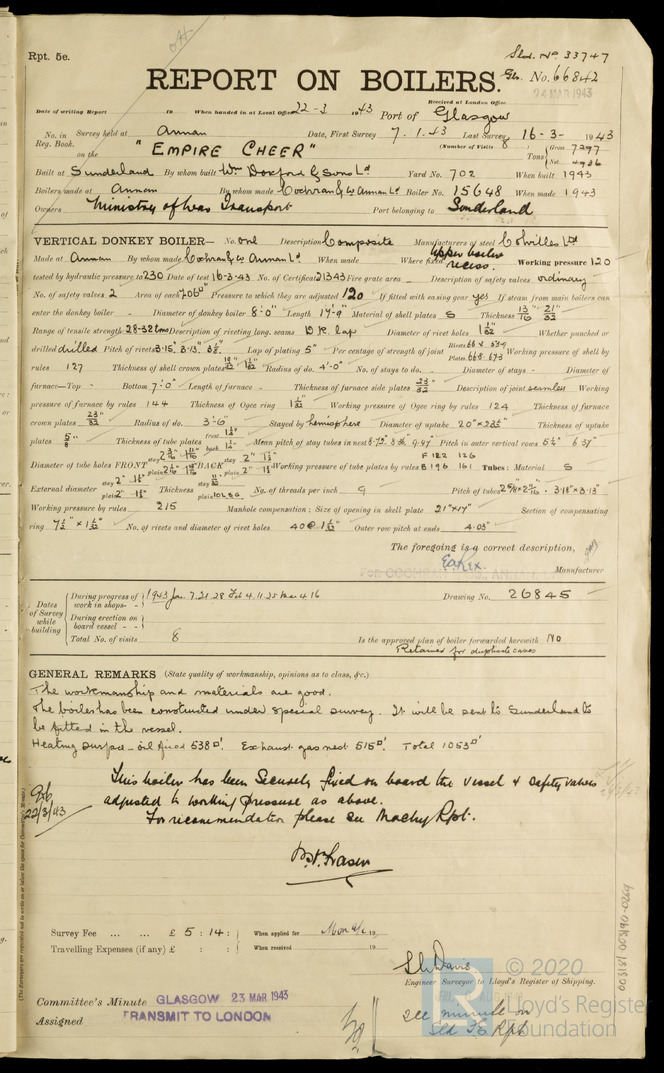 Rpt. 5e.
Sld. No 33747
REPORT ON BOILERS.
Gls. No. 66842
24 MAR 1943
Received at London Office
Date of writing Report 19 When handed in at Local Office 22-3 1943 Port of Glasgow
No. in Reg. Book. Survey held at Annan Date, First Survey 7.1.43 Last Survey 16-3- 1943
(Number of Visits 8)
on the "EMPIRE CHEER" Tons Gross 7297 Net 4936
Built at Sunderland By whom built Wm Doxford & Sons Ld Yard No. 702 When built 1943
Boilers made at Annan By whom made Cochran & Co Annan Ld Boiler No. 15648 When made 1943
Owners Ministry of War Transport Port belonging to Sunderland
VERTICAL DONKEY BOILER— No. one Description Composite Manufacturers of steel Colvilles Ltd
Made at Annan By whom made Cochran & Co Annan Ld. When made Where fixed Upper boiler recess. Working pressure 120
tested by hydraulic pressure to 230 Date of test 16-3-43 No. of Certificate 21343 Fire grate area - Description of safety valves ordinary
No. of safety valves 2 Area of each 7.06" Pressure to which they are adjusted 120 If fitted with easing gear yes If steam from main boilers can
enter the donkey boiler - Diameter of donkey boiler 8'-0" Length 17'-9" Material of shell plates S Thickness 13/16" 21/32"
Range of tensile strength 28-32 tons Description of riveting long. seams D.R. lap Diameter of rivet holes 1 1/32 Whether punched or
drilled drilled Pitch of rivets Lap of plating 5" Per centage of strength of joint Rivets Plates Working pressure of shell by
rules 127 Thickness of shell crown plates Radius of do. 4'-0" No. of stays to do. - Diameter of stays - Diameter of
furnace—Top - Bottom 7'-0" Length of furnace - Thickness of furnace side plates 23/32 Description of joint seamless Working
pressure of furnace by rules 144 Thickness of Ogee ring 1 1/32 Working pressure of Ogee ring by rules 124 Thickness of furnace
crown plates 23/32 Radius of do. 3'-6" Stayed by hemisphere Diameter of uptake 20" x 23½" Thickness of uptake
plates 5/8" Thickness of tube plates front back Mean pitch of stay tubes in nest Pitch in outer vertical rows
F 122 126
Diameter of tube holes FRONT stay plain BACK stay 2" plain 2" Working pressure of tube plates by rules B 196 161 Tubes: Material S
External diameter stay 2" plain 2" Thickness stay plain 10 LSG No. of threads per inch 9 Pitch of tubes
Working pressure by rules 215 Manhole compensation: Size of opening in shell plate 21" x 17" Section of compensating
ring No. of rivets and diameter of rivet holes 40 @ 1 1/32" Outer row pitch at ends 4.03"
The foregoing is a correct description,
Manufacturer
Dates of Survey while building
During progress of work in shops - - 1943 Jan 7.21.28 Feb 4.11.25 Mar 4.16
Drawing No. 26845
During erection on board vessel - -
Total No. of visits 8
Is the approved plan of boiler forwarded herewith No
Retained for duplicate cases
GENERAL REMARKS (State quality of workmanship, opinions as to class, &c.)
The workmanship and materials are good.
The boiler has been constructed under special survey. It will be sent to Sunderland to
be fitted in the vessel.
Heating surface - oil fired 538□'. Exhaust gas nest 515□'. Total 1053□'
This boiler has been securely fixed on board the vessel & safety valves
adjusted to working pressure as above.
For recommendation please see Machy Rpt.
22/3/43
Survey Fee ... ... £ 5 : 14 : When applied for 19
Travelling Expenses (if any) £ : : When received 19
Engineer Surveyor to Lloyd's Register of Shipping.
Committee's Minute GLASGOW 23 MAR 1943
Assigned TRANSMIT TO LONDON
see minute on
Sld F.E. Rpt
003181-003190-0269
© 2020
Lloyd's Register
Foundation